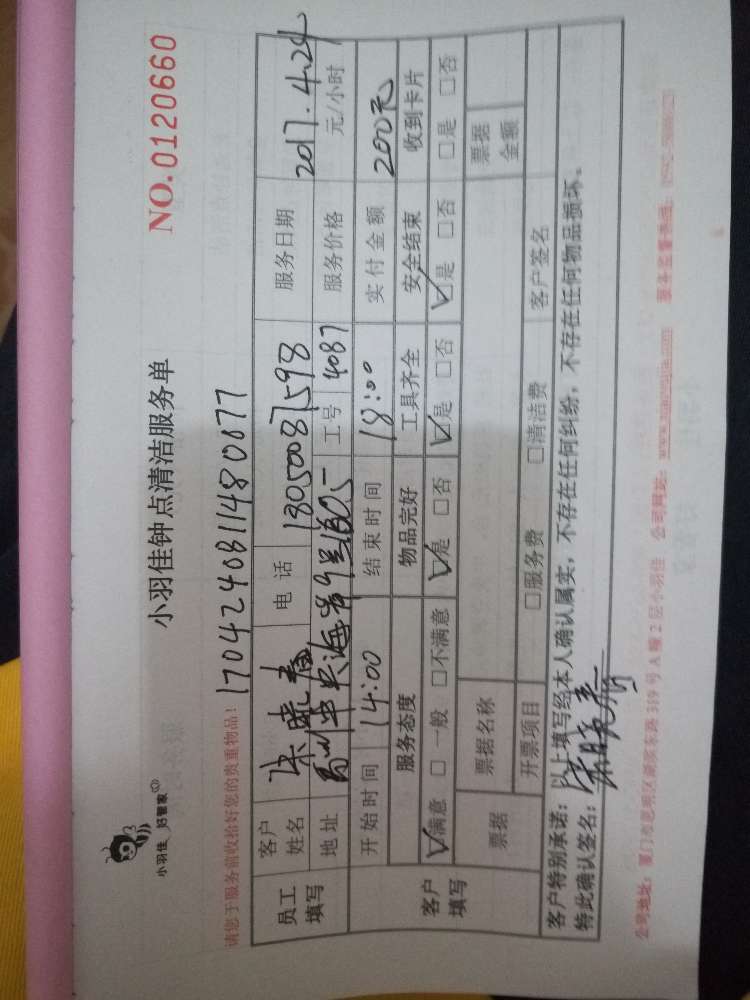 小羽佳 好管家
小羽佳钟点清洁服务单
NO.0120660
请您于服务前收拾好您的贵重物品!
1704240811480077
员工填写
客户姓名
电话 18050087598
服务日期 2017.4.24
地址
工号 4087
服务价格 元/小时
开始时间 14:00
结束时间 18:00
实付金额 200元
客户填写
服务态度 物品完好 工具齐全 安全结束 收到卡片
☑满意 □一般 □不满意 ☑是 □否 ☑是 □否 ☑是 □否 □是 □否
票据 票据名称 票据金额
开票项目 □服务费 □清洁费 客户签名
客户特别承诺:以上填写经本人确认属实,不存在任何纠纷,不存在任何物品损坏。
特此确认签名:
公司地址:厦门市思明区湖滨东路319号A幢2层小羽佳 公司网址: 服务监督热线: